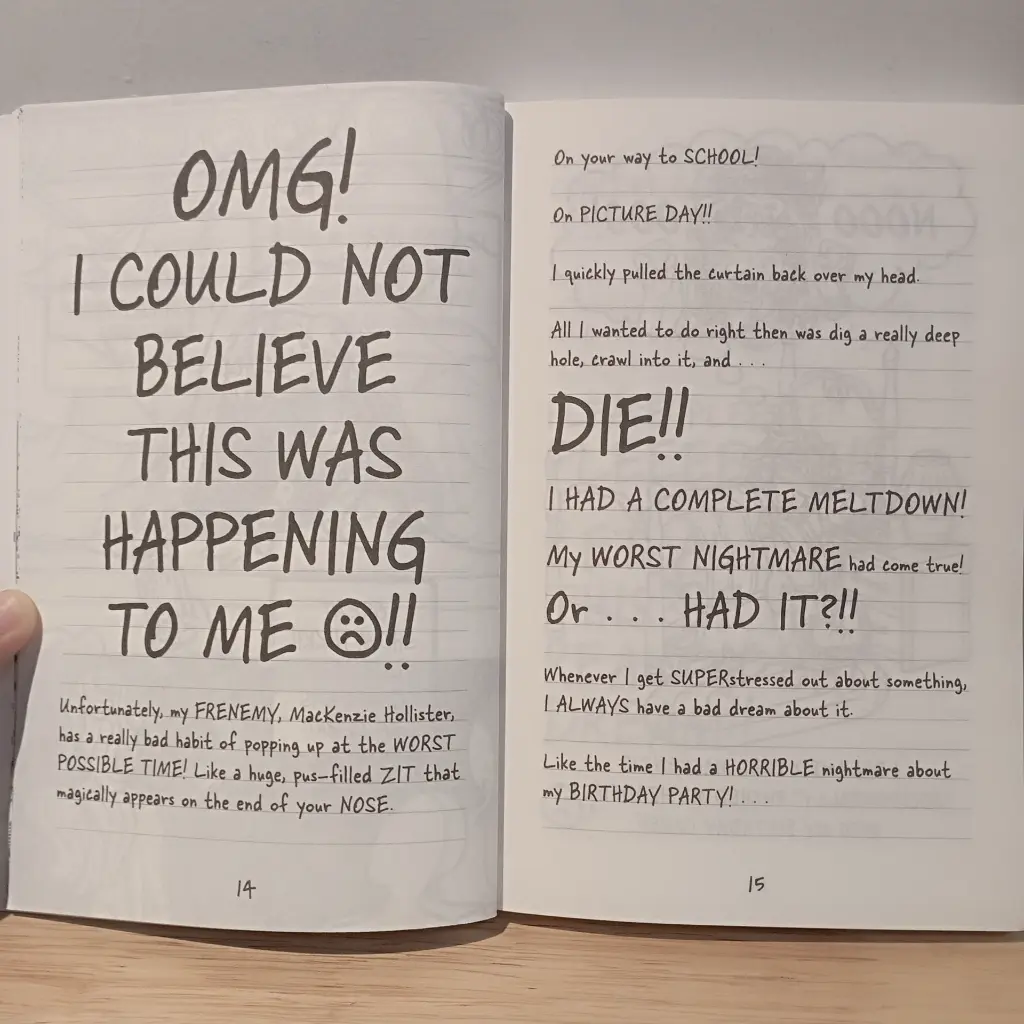 OMG!
I COULD NOT
BELIEVE
THIS WAS
HAPPENING
TO ME ☹!!
Unfortunately, my FRENEMY, MacKenzie Hollister,
has a really bad habit of popping up at the WORST
POSSIBLE TIME! Like a huge, pus-filled ZIT that
magically appears on the end of your NOSE.
14
On your way to SCHOOL!
On PICTURE DAY!!
I quickly pulled the curtain back over my head.
All I wanted to do right then was dig a really deep
hole, crawl into it, and . . .
DIE!!
I HAD A COMPLETE MELTDOWN!
My WORST NIGHTMARE had come true!
Or . . . HAD IT?!!
Whenever I get SUPERstressed out about something,
I ALWAYS have a bad dream about it.
Like the time I had a HORRIBLE nightmare about
my BIRTHDAY PARTY! . . .
15